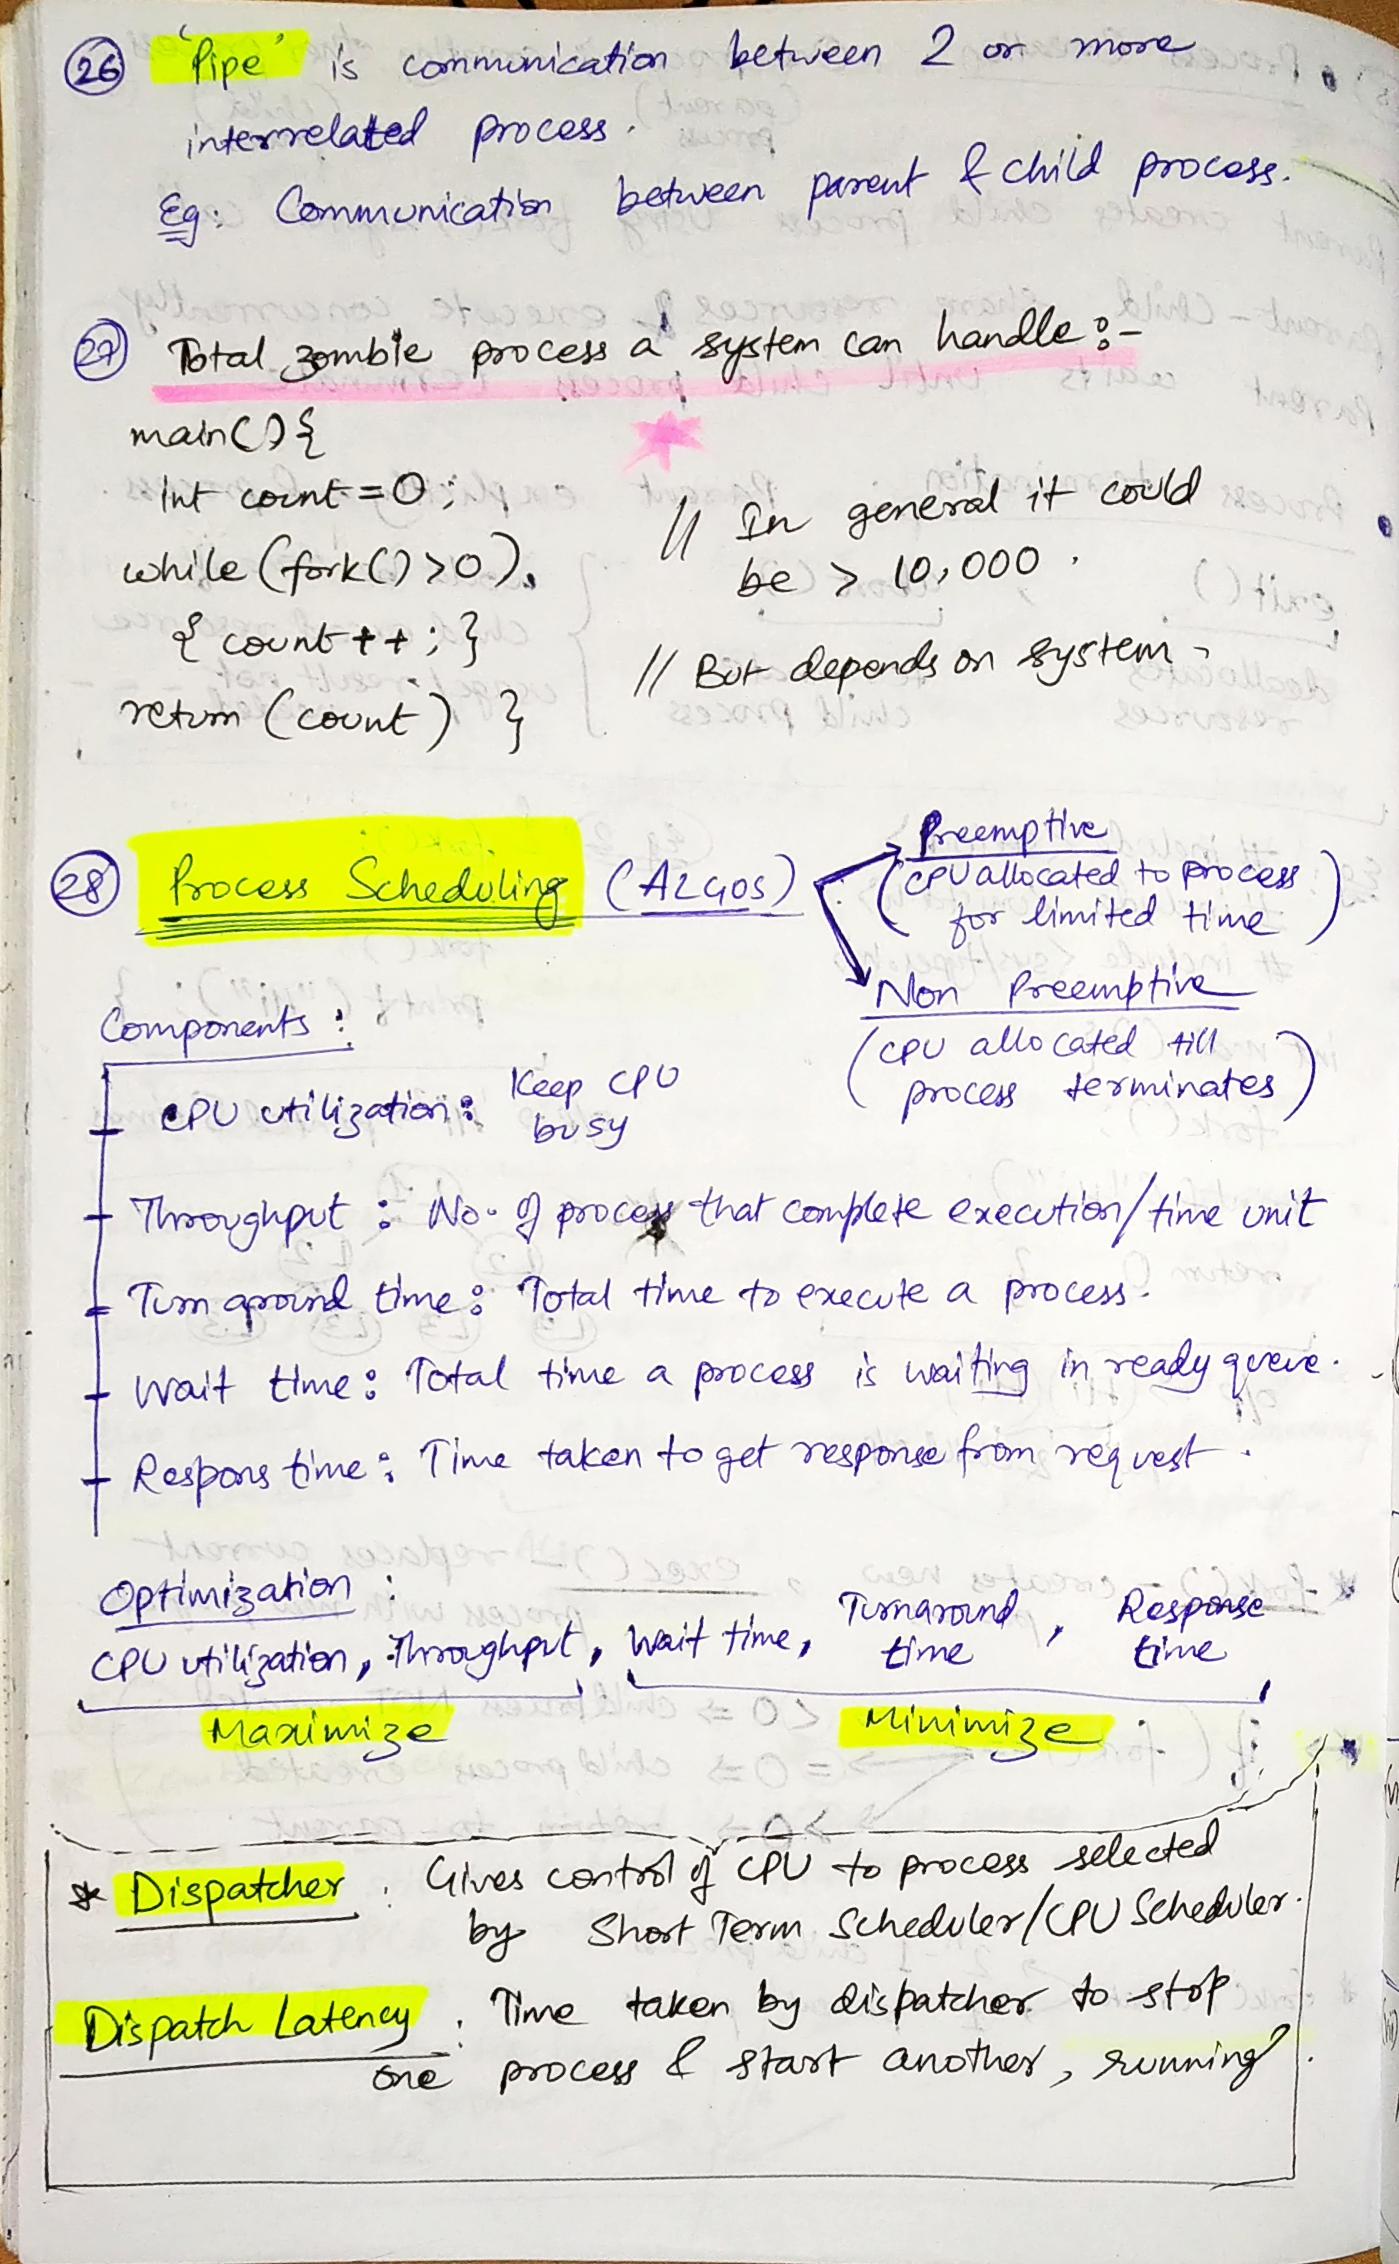 26 'Pipe' is communication between 2 or more
interrelated process.
Eg: Communication between parent & child process.
27 Total zombie process a system can handle :-
main() {
int count = 0 ;
while (fork() > 0)
{ count ++ ; }
return (count) }
// In general it could
be > 10,000 .
// But depends on system
28 Process Scheduling (ALGOS)
Preemptive
(CPU allocated to process
for limited time)
Non Preemptive
(CPU allocated till
process terminates)
Components :
CPU utilization : Keep CPU
busy
Throughput : No. of process that complete execution/time unit
Turn around time : Total time to execute a process.
Wait time : Total time a process is waiting in ready queue.
Respons time : Time taken to get response from request .
Optimization :
CPU utilization, Throughput, Wait time, Turnaround time, Response time
Maximize Minimize
* Dispatcher : Gives control of CPU to process selected
by Short Term Scheduler/CPU Scheduler.
Dispatch Latency : Time taken by dispatcher to stop
one process & start another, running .